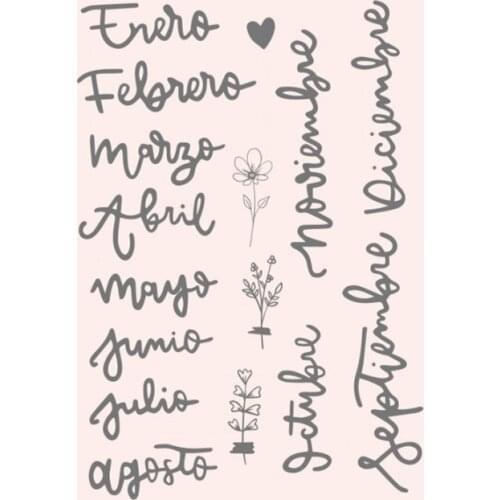 Enero
Febrero
Marzo
Abril
mayo
junio
julio
agosto
Septiembre
octubre
Noviembre
Diciembre